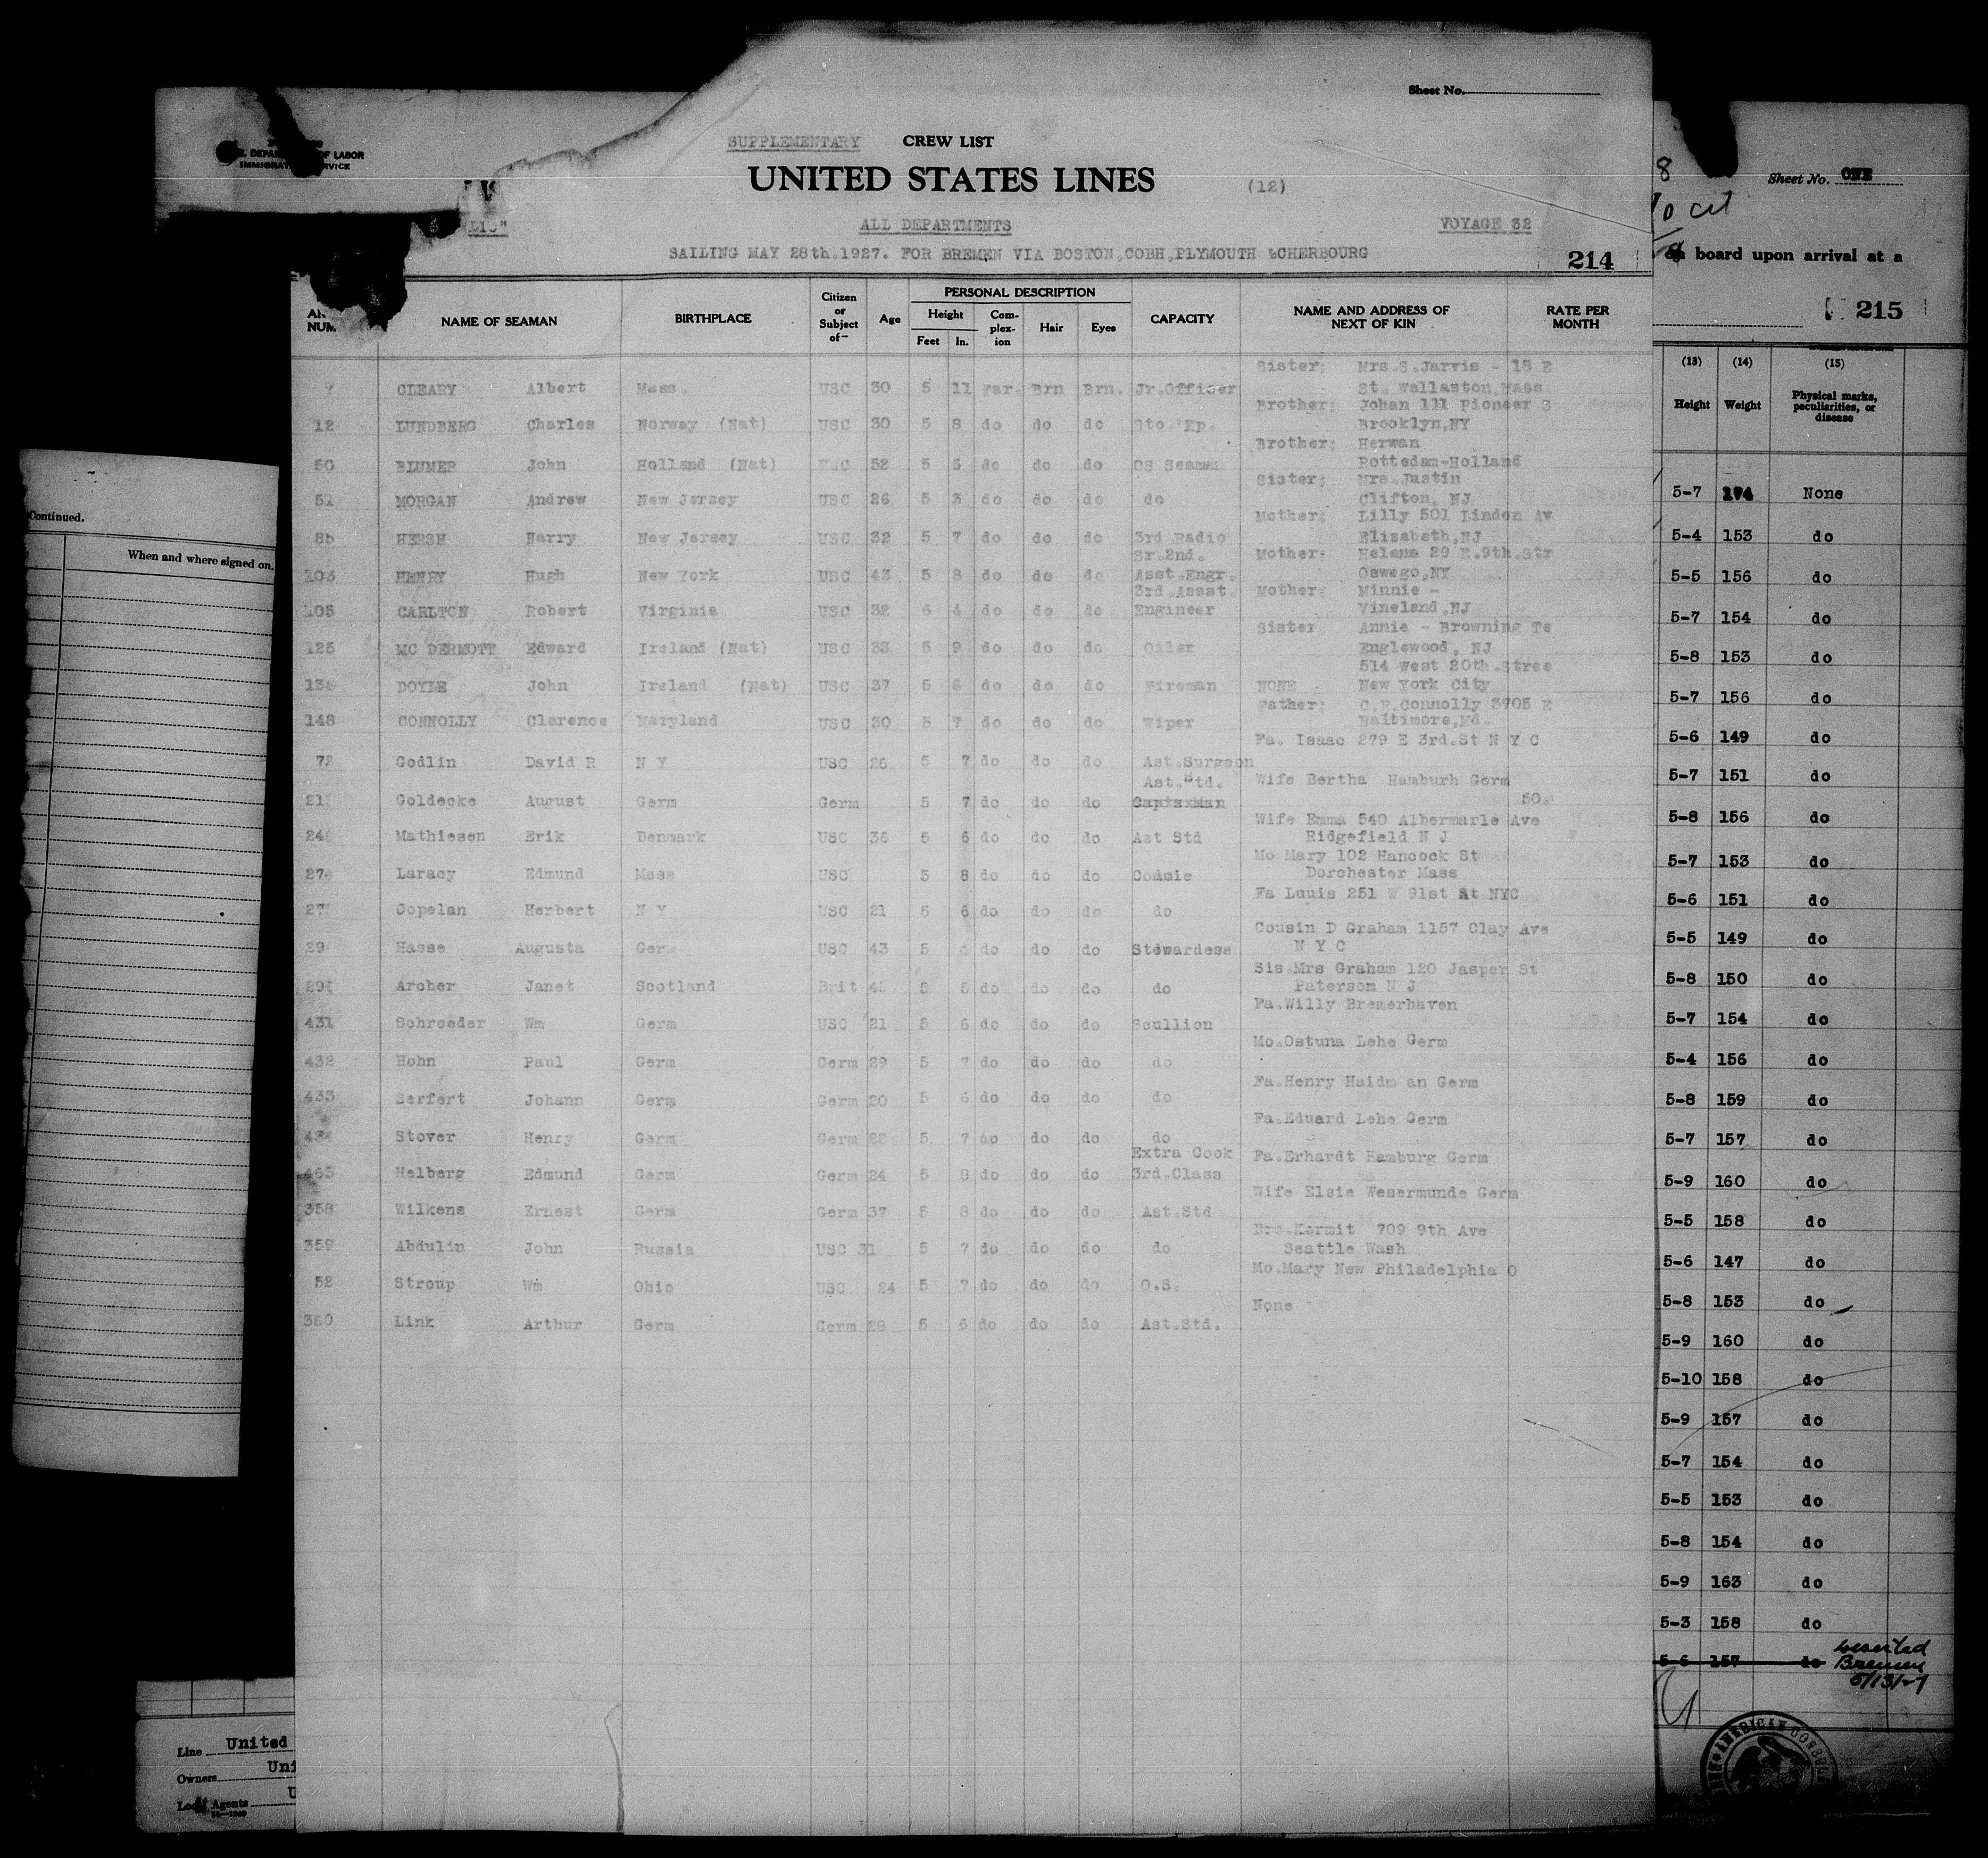 Sheet No.
SUPPLEMENTARY CREW LIST
OF LABOR
UNITED STATES LINES (12)
ALL DEPARTMENTS VOYAGE 32
SAILING MAY 28th.1927. FOR BREMEN VIA BOSTON,COBH,PLYMOUTH &CHERBOURG 214
NAME OF SEAMAN BIRTHPLACE Citizen or Subject of— Age PERSONAL DESCRIPTION Height Feet In. Com-plex-ion Hair Eyes CAPACITY NAME AND ADDRESS OF NEXT OF KIN RATE PER MONTH
Sister; Mrs.S.Jarvis - 18 E
CLEARY Albert Mass. USC 30 5 11 Far. Brn Brn. Jr.Officer St. Wollaston,Mass
Brother; Johan 111 Pioneer S
12 LUNDBERG Charles Norway (Nat) USC 30 5 8 do do do Sto. Kp. Brooklyn,NY
Brother; Herwan
50 BLUMER John Holland (Nat) USC 52 5 6 do do do OS Seaman Rottedam-Holland
Sister; Mrs.Justin
51 MORGAN Andrew New Jersey USC 26 5 3 do do do do Clifton, NJ
Mother; Lilly 501 Linden Av
85 HERSH Harry New Jersey USC 32 5 7 do do do 3rd Radio Elizabeth,NJ
Sr.2nd. Mother; Helena 29 E.9th.Str
103 HENRY Hugh New York USC 43 5 8 do do do Asst.Engr. Oswego,NY
3rd.Assst. Mother; Minnie -
105 CARLTON Robert Virginia USC 32 6 4 do do do Engineer Vineland,NJ
Sister Annie - Browning Te
125 MC DERMOTT Edward Ireland (Nat) USC 33 5 9 do do do Oiler Englewood, NJ
514 West 20th.Stree
DOYLE John Ireland (Nat) USC 37 5 do do do Fireman NONE New York City
Father; C.R.Connolly 3705 E
148 CONNOLLY Clarence Maryland USC 30 5 7 do do do Wiper Baltimore,Md.
Fa. Isaac 279 E 3rd.St N Y C
Godlin David R N Y USC 26 5 7 do do do Ast.Surgeon
Ast.Std. Wife Bertha Hamburh Germ
Goldecke August Germ Germ 5 7 do do do 50.
Wife Emma 540 Albermarle Ave
Mathiesen Erik Denmark USC 36 5 6 do do do Ast Std Ridgefield N J
Mo Mary 102 Hancock St
Laracy Edmund Mass USC 5 8 do do do Commie Dorchester Mass
Fa Luuis 251 W 91st At NYC
Copelan Herbert N Y USC 21 5 6 do do do do
Cousin D Graham 1157 Clay Ave
Hasse Augusta Ger USC 43 5 do do do Stewardess N Y C
Sis.Mrs Graham 120 Jasper St
Archer Janet Scotland Brit 5 do do do do Paterson N J
Fa.Willy Bremerhaven
431 Schroeder Wm Germ USC 21 5 6 do do do Scullion
Mo.Ostuna Lehe Germ
432 Hohn Paul Germ Germ 29 5 7 do do do do
Fa.Henry Haidm an Germ
433 Serfert Johann Germ Germ 20 5 6 do do do do
Fa.Eduard Lehe Germ
434 Stover Henry Germ Germ 5 7 do do do do
Extra Cook Fa.Erhardt Hamburg Germ
Helberg Edmund Germ Germ 24 5 8 do do do 3rd.Class
Wife Elsie Wesermunde Germ
358 Wilkens Ernest Germ Germ 37 5 8 do do do Ast.Std
Bro.Kermit 709 9th Ave
359 Abdulin John Russia USC 31 5 7 do do do do Seattle Wash
Mo.Mary New Philadelphia O
52 Stroup Wm Ohio USC 24 5 7 do do do O.S.
None
360 Link Arthur Germ Germ 5 6 do do do Ast.Std.
Continued.
When and where signed on.
Line United
Owners
Agents
8
Sheet No. ONE
board upon arrival at a
215
(13) (14) (15)
Height Weight Physical marks, peculiarities, or disease
5-7 174 None
5-4 153 do
5-5 156 do
5-7 154 do
5-8 153 do
5-7 156 do
5-6 149 do
5-7 151 do
5-8 156 do
5-7 153 do
5-6 151 do
5-5 149 do
5-8 150 do
5-7 154 do
5-4 156 do
5-8 159 do
5-7 157 do
5-9 160 do
5-5 158 do
5-6 147 do
5-8 153 do
5-9 160 do
5-10 158 do
5-9 157 do
5-7 154 do
5-5 153 do
5-8 154 do
5-9 163 do
5-3 158 do
5-6 157 do Deserted
Bremen
5/13/27
AMERICAN